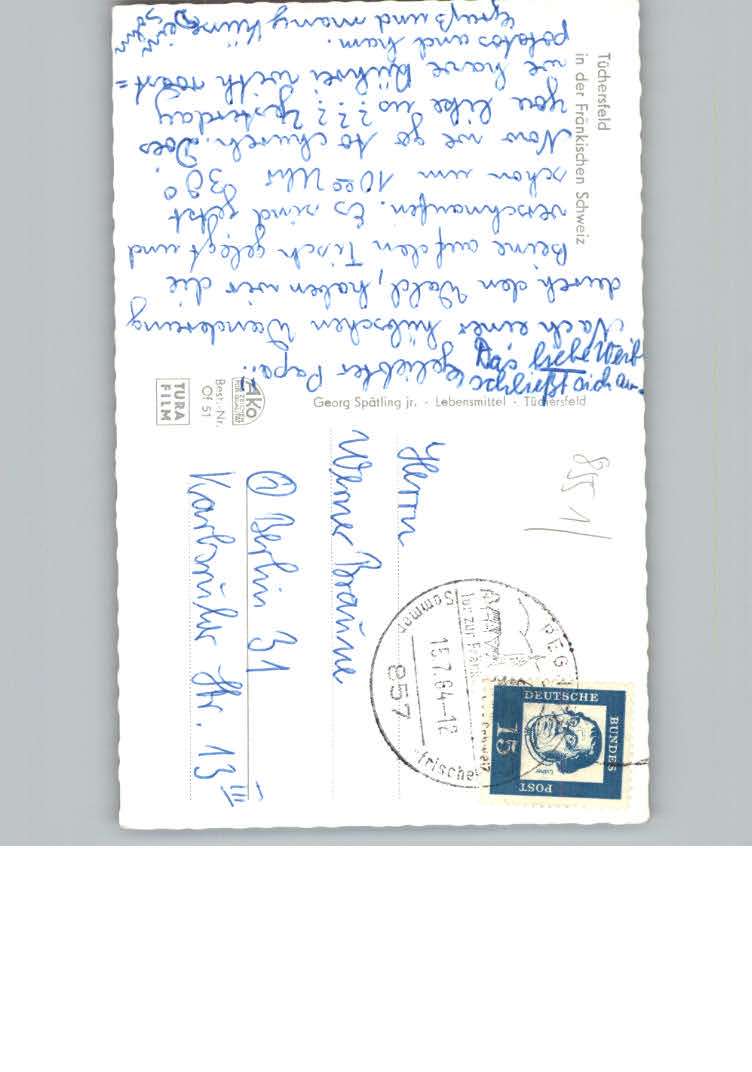 Tüchersfeld
in der Fränkischen Schweiz
Geliebter Papa!
Nach einer hübschen Wanderung
durch den Wald, haben wir die
Beine auf den Tisch gelegt und
verschnaufen. Es sind jetzt
schon um 10 00 Uhr 39°
Now we go to church. Does
you like us??? Yesterday
we have with roast=
potatos and ham.
Gruß und many Küsse
Dein
Sohn
Das liebe Weib
schließt sich an.
Georg Spätling jr. - Lebensmittel - Tüchersfeld
Ako
TURA
FILM
Best.-Nr.
Of 51
855 1/
Herrn
Werner Braune
1 Berlin 31
Karlsruher Str. 13 III
857
15.7.64-12
Sommer
frische
DEUTSCHE
BUNDES
POST
15
Luther